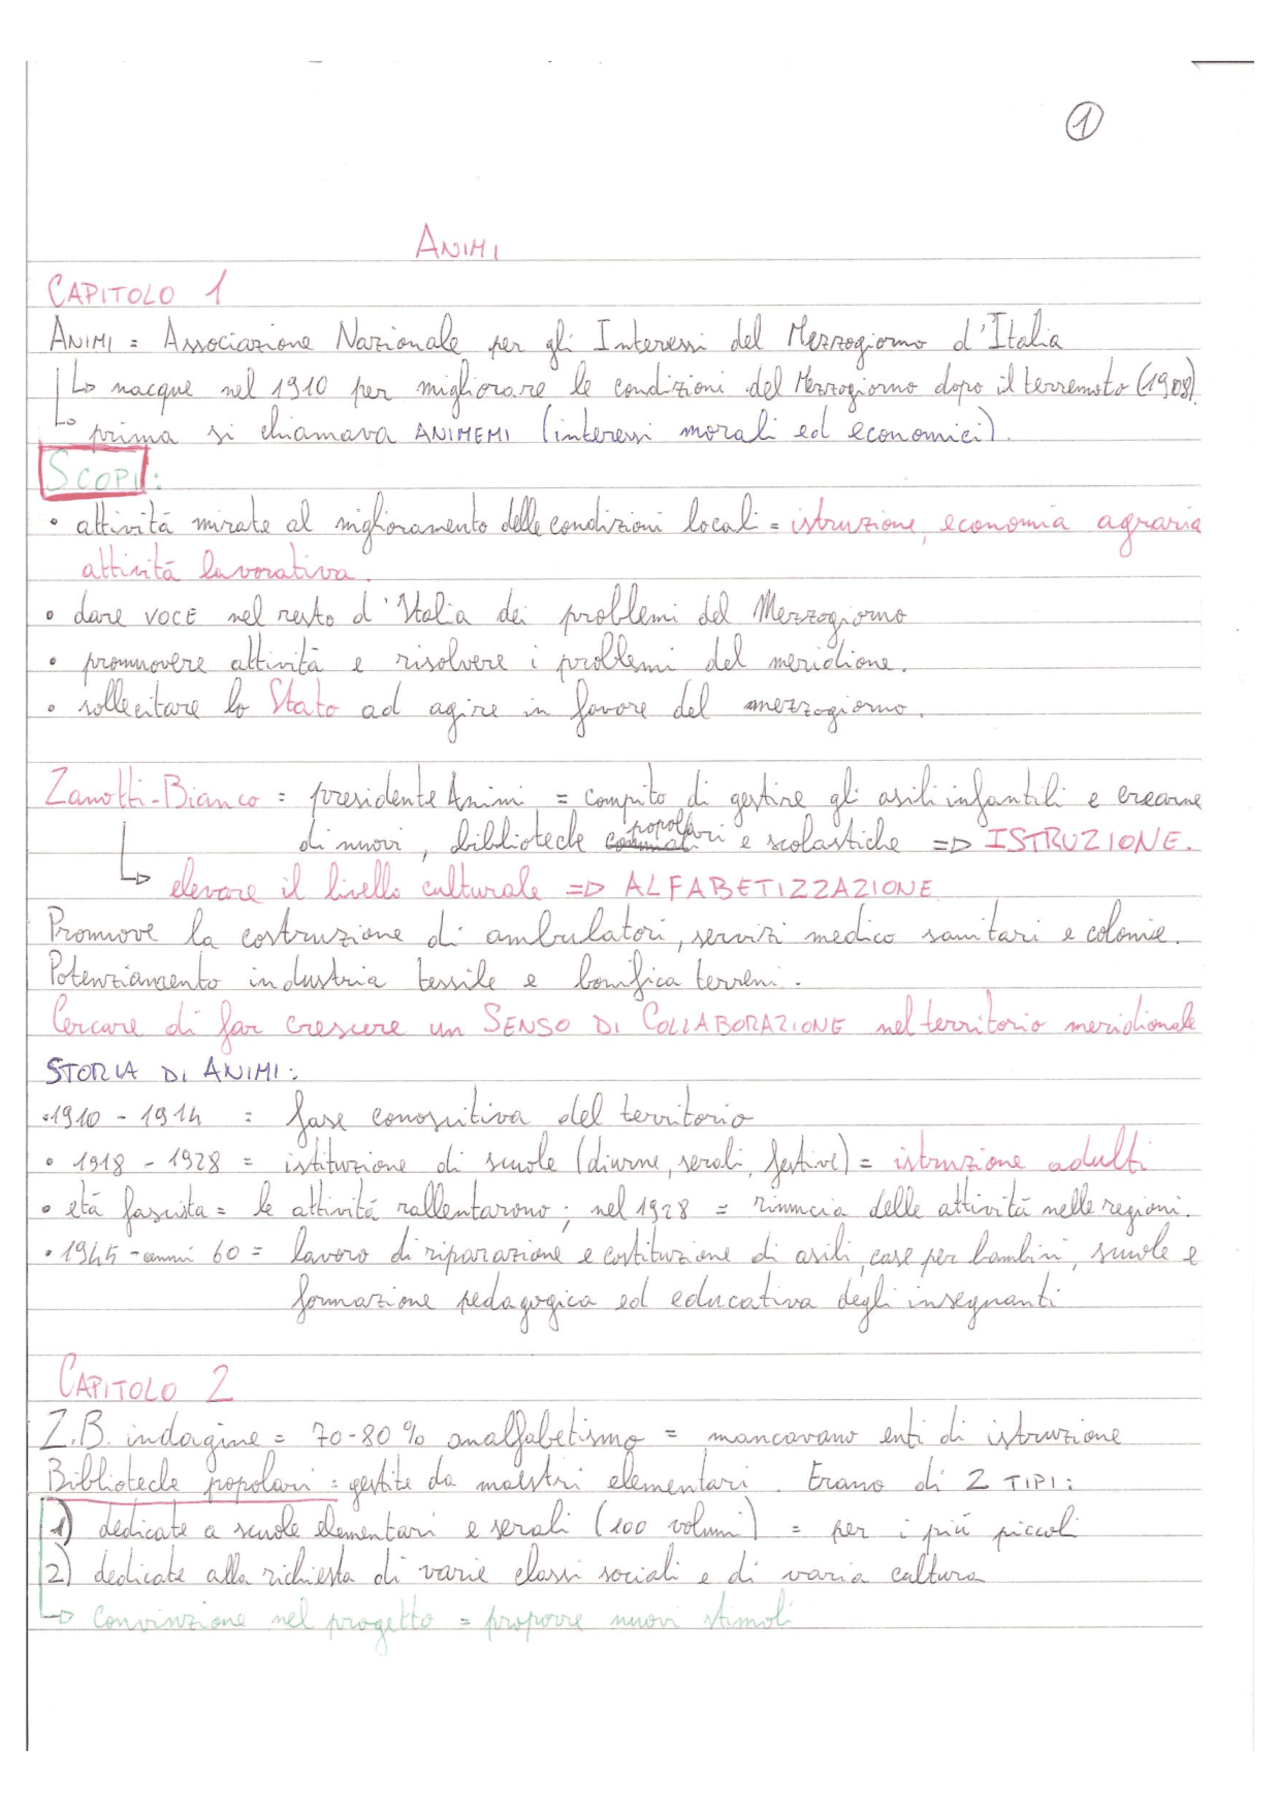 1
ANIMI
CAPITOLO 1
ANIMI = Associazione Nazionale per gli Interessi del Mezzogiorno d'Italia
↳ nacque nel 1910 per migliorare le condizioni del Mezzogiorno dopo il terremoto (1908)
↳ prima si chiamava ANIMEMI (interessi morali ed economici).
SCOPI:
• attività mirate al miglioramento delle condizioni locali = istruzione, economia agraria
attività lavorativa.
• dare VOCE nel resto d'Italia dei problemi del Mezzogiorno
• promuovere attività e risolvere i problemi del meridione.
• sollecitare lo Stato ad agire in favore del mezzogiorno.
Zanotti-Bianco = presidente Animi = compito di gestire gli asili infantili e crearne
di nuovi, biblioteche popolari e scolastiche => ISTRUZIONE.
↳ elevare il livello culturale => ALFABETIZZAZIONE
Promuove la costruzione di ambulatori, servizi medico sanitari e colonie.
Potenziamento industria tessile e bonifica terreni.
Cercare di far crescere un SENSO DI COLLABORAZIONE nel territorio meridionale
STORIA DI ANIMI:
• 1910 - 1914 = fase conoscitiva del territorio
• 1918 - 1928 = istituzione di scuole (diurne, serali, festive) = istruzione adulti
• età fascista = le attività rallentarono; nel 1928 = rinuncia delle attività nelle regioni.
• 1945 - anni 60 = lavoro di riparazione e costituzione di asili, case per bambini, scuole e
formazione pedagogica ed educativa degli insegnanti
CAPITOLO 2
Z.B. indagine = 70-80% analfabetismo = mancavano enti di istruzione
Biblioteche popolari = gestite da maestri elementari. Erano di 2 TIPI:
1) dedicate a scuole elementari e serali (100 volumi) = per i più piccoli
2) dedicate alla richiesta di varie classi sociali e di varia cultura
↳ Convinzione nel progetto = proporre nuovi stimoli